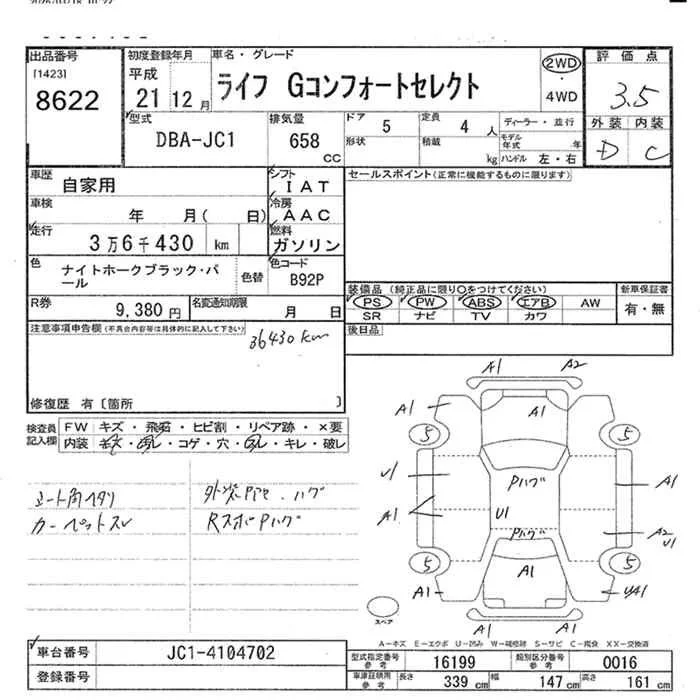 出品番号
[1423]
8622
初度登録年月
平成
21年 12月
車名・グレード
ライフ Gコンフォートセレクト
2WD
・
4WD
評価点
3.5
外装 内装
D C
型式
DBA-JC1
排気量
658
CC
ドア
5
定員
4 人
ディーラー・並行
形状
積載
kg
モデル年式 年
ハンドル 左・右
車歴
自家用
シフト
IAT
セールスポイント(正常に機能するものに限ります)
車検
年 月( 日)
冷房
AAC
走行
3万6千430 km
燃料
ガソリン
色
ナイトホークブラック・パール
色替
色コード
B92P
装備品 (純正品に限り○をつけてください)
新車保証書
PS PW ABS エアB AW
有・無
SR ナビ TV カワ
R券
9,380円
名変通知期限
月 日
後日品
注意事項申告欄(不具合内容等は具体的に記入して下さい)
36430km
修復歴 有〔箇所 〕
検査員記入欄
FW キズ・飛石・ヒビ割・リペア跡・×要
内装 キズ・コゲ・穴・キレ・破レ
シート角ヘタリ
カーペットスレ
R スポ Pハゲ
A1 A2
A1 A1 A1
5 5
U1 Pハゲ A1
A1 U1 A2
U1
Pハゲ
5 5
A1 A1 UA1
A1 A1
スペア
A-キズ E-エクボ U-凹み W-補修跡 S-サビ C-腐食 XX-交換済
車台番号
JC1-4104702
登録番号
型式指定番号
参考
16199
類別区分番号
参考
0016
車庫証明用
参考
長さ
339 cm
幅
147 cm
高さ
161 cm